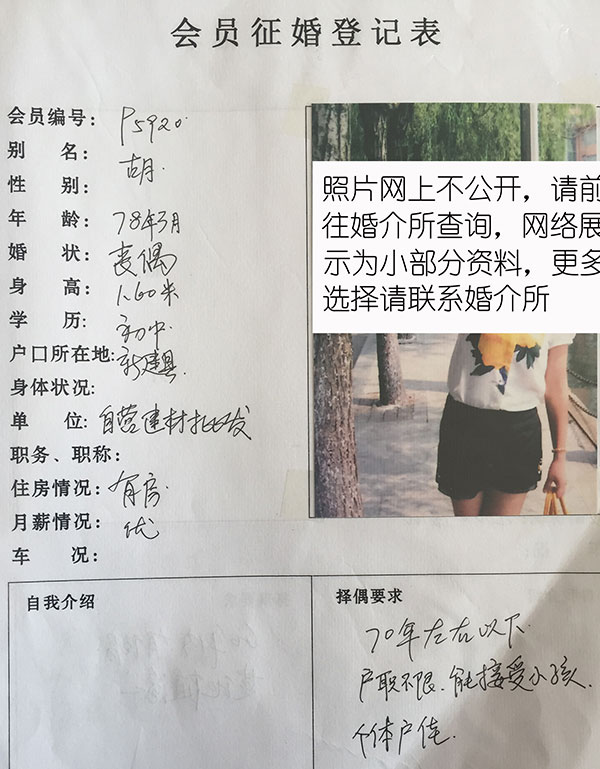 会员征婚登记表
会员编号: P5920
别 名: 胡
性 别:
年 龄: 78年3月
婚 状: 丧偶
身 高: 1.60米
学 历: 初中
户口所在地: 新建县
身体状况:
单 位: 自营建材批发
职务、职称:
住房情况: 有房
月薪情况: 优
车 况:
照片网上不公开，请前
往婚介所查询，网络展
示为小部分资料，更多
选择请联系婚介所
自我介绍
择偶要求
70年左右以下
户职不限.能接受小孩.
个体户佳.